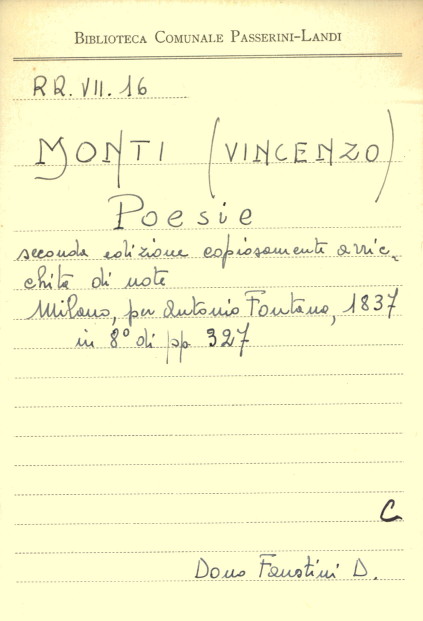 BIBLIOTECA COMUNALE PASSERINI-LANDI
RR.VII.16
MONTI (VINCENZO)
Poesie
seconda edizione copiosamente arric-
chita di note
Milano, per Antonio Fontana, 1837
in 8° di pp 327
C
Dono Faustini D.